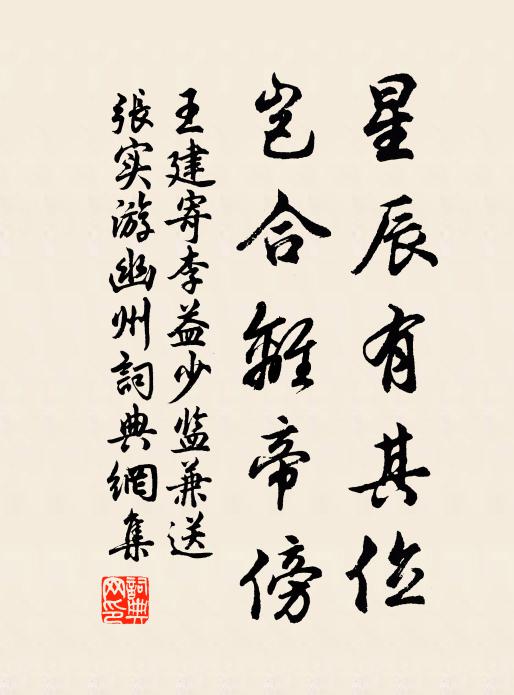 星辰有其位
岂合離帝傍
王建寄李益少监兼送
張实游幽州詞典網集
詞典網印